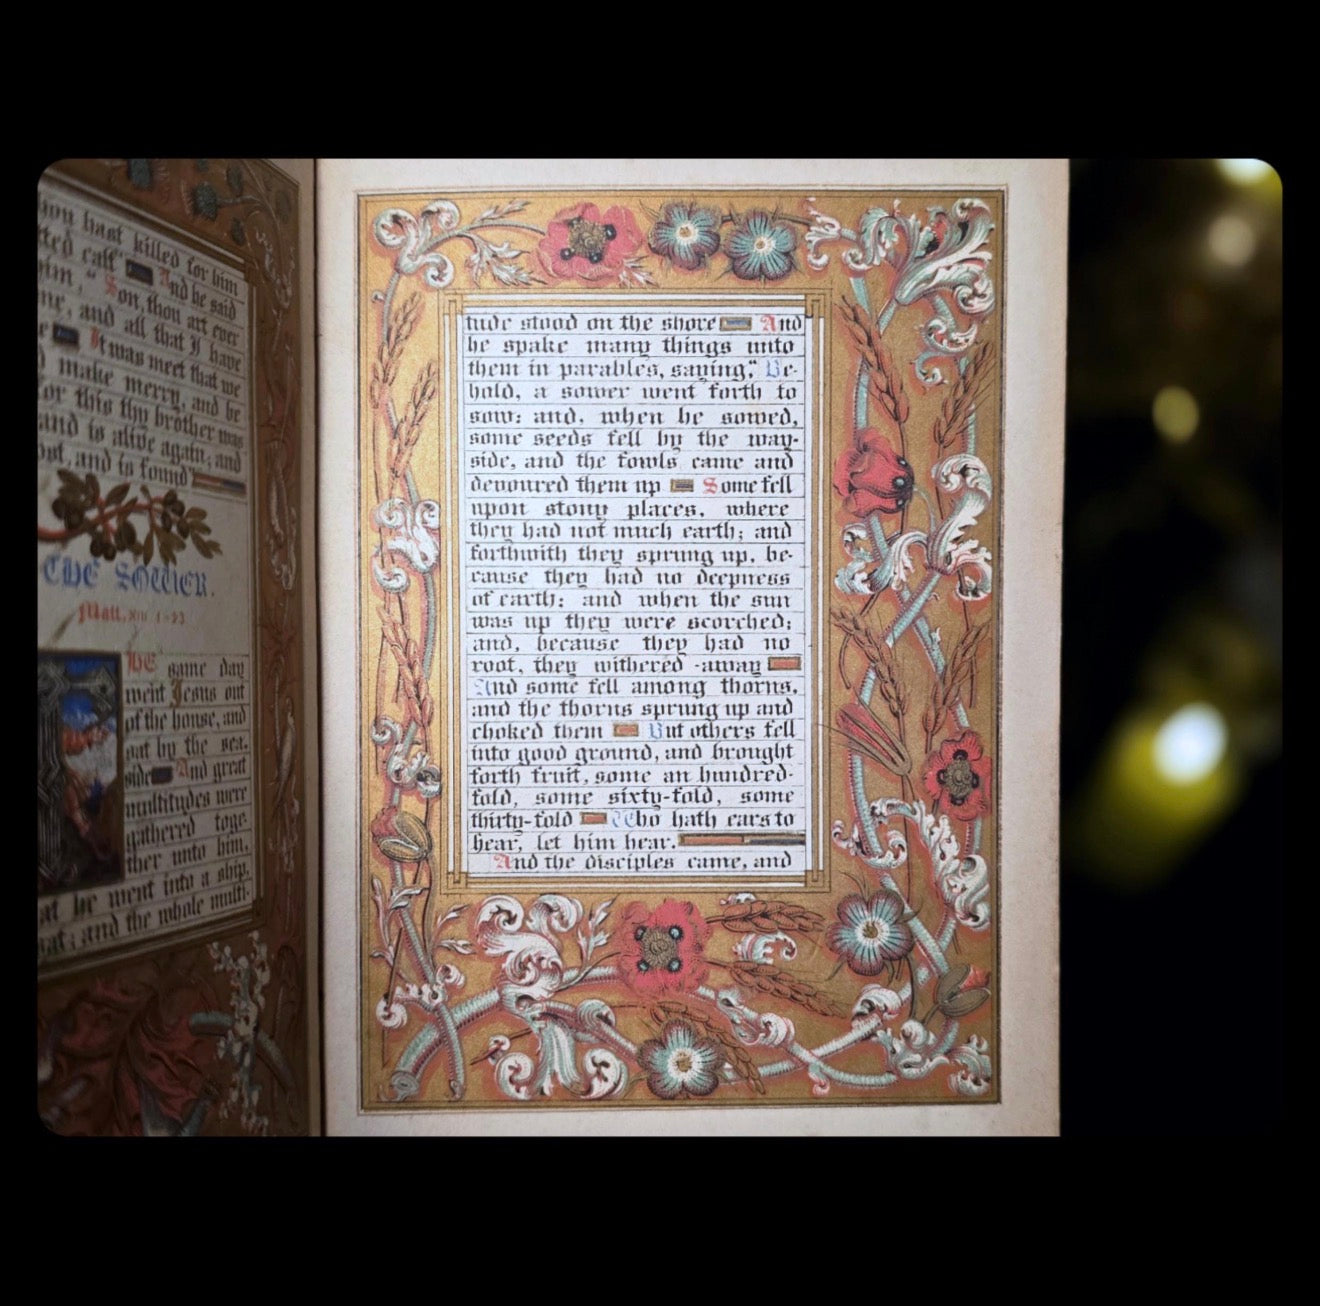 hast killed for him
calf And he said
Son, thou art ever
and all that I have
It was meet that we
make merry, and be
this thy brother was
and is alive again; and
and is found
THE SOWER.
Matt. XIII 1-23
THE same day
went Jesus out
of the house, and
sat by the sea-
side And great
multitudes were
gathered toge-
ther unto him,
he went into a ship,
and the whole multi-
tude stood on the shore And
he spake many things unto
them in parables, saying," Be-
hold, a sower went forth to
sow: and, when he sowed,
some seeds fell by the way-
side, and the fowls came and
devoured them up Some fell
upon stony places, where
they had not much earth; and
forthwith they sprung up, be-
cause they had no deepness
of earth: and when the sun
was up they were scorched;
and, because they had no
root, they withered -away
And some fell among thorns,
and the thorns sprung up and
choked them But others fell
into good ground, and brought
forth fruit, some an hundred-
fold, some sixty-fold, some
thirty-fold Who hath ears to
hear, let him hear.
And the disciples came, and